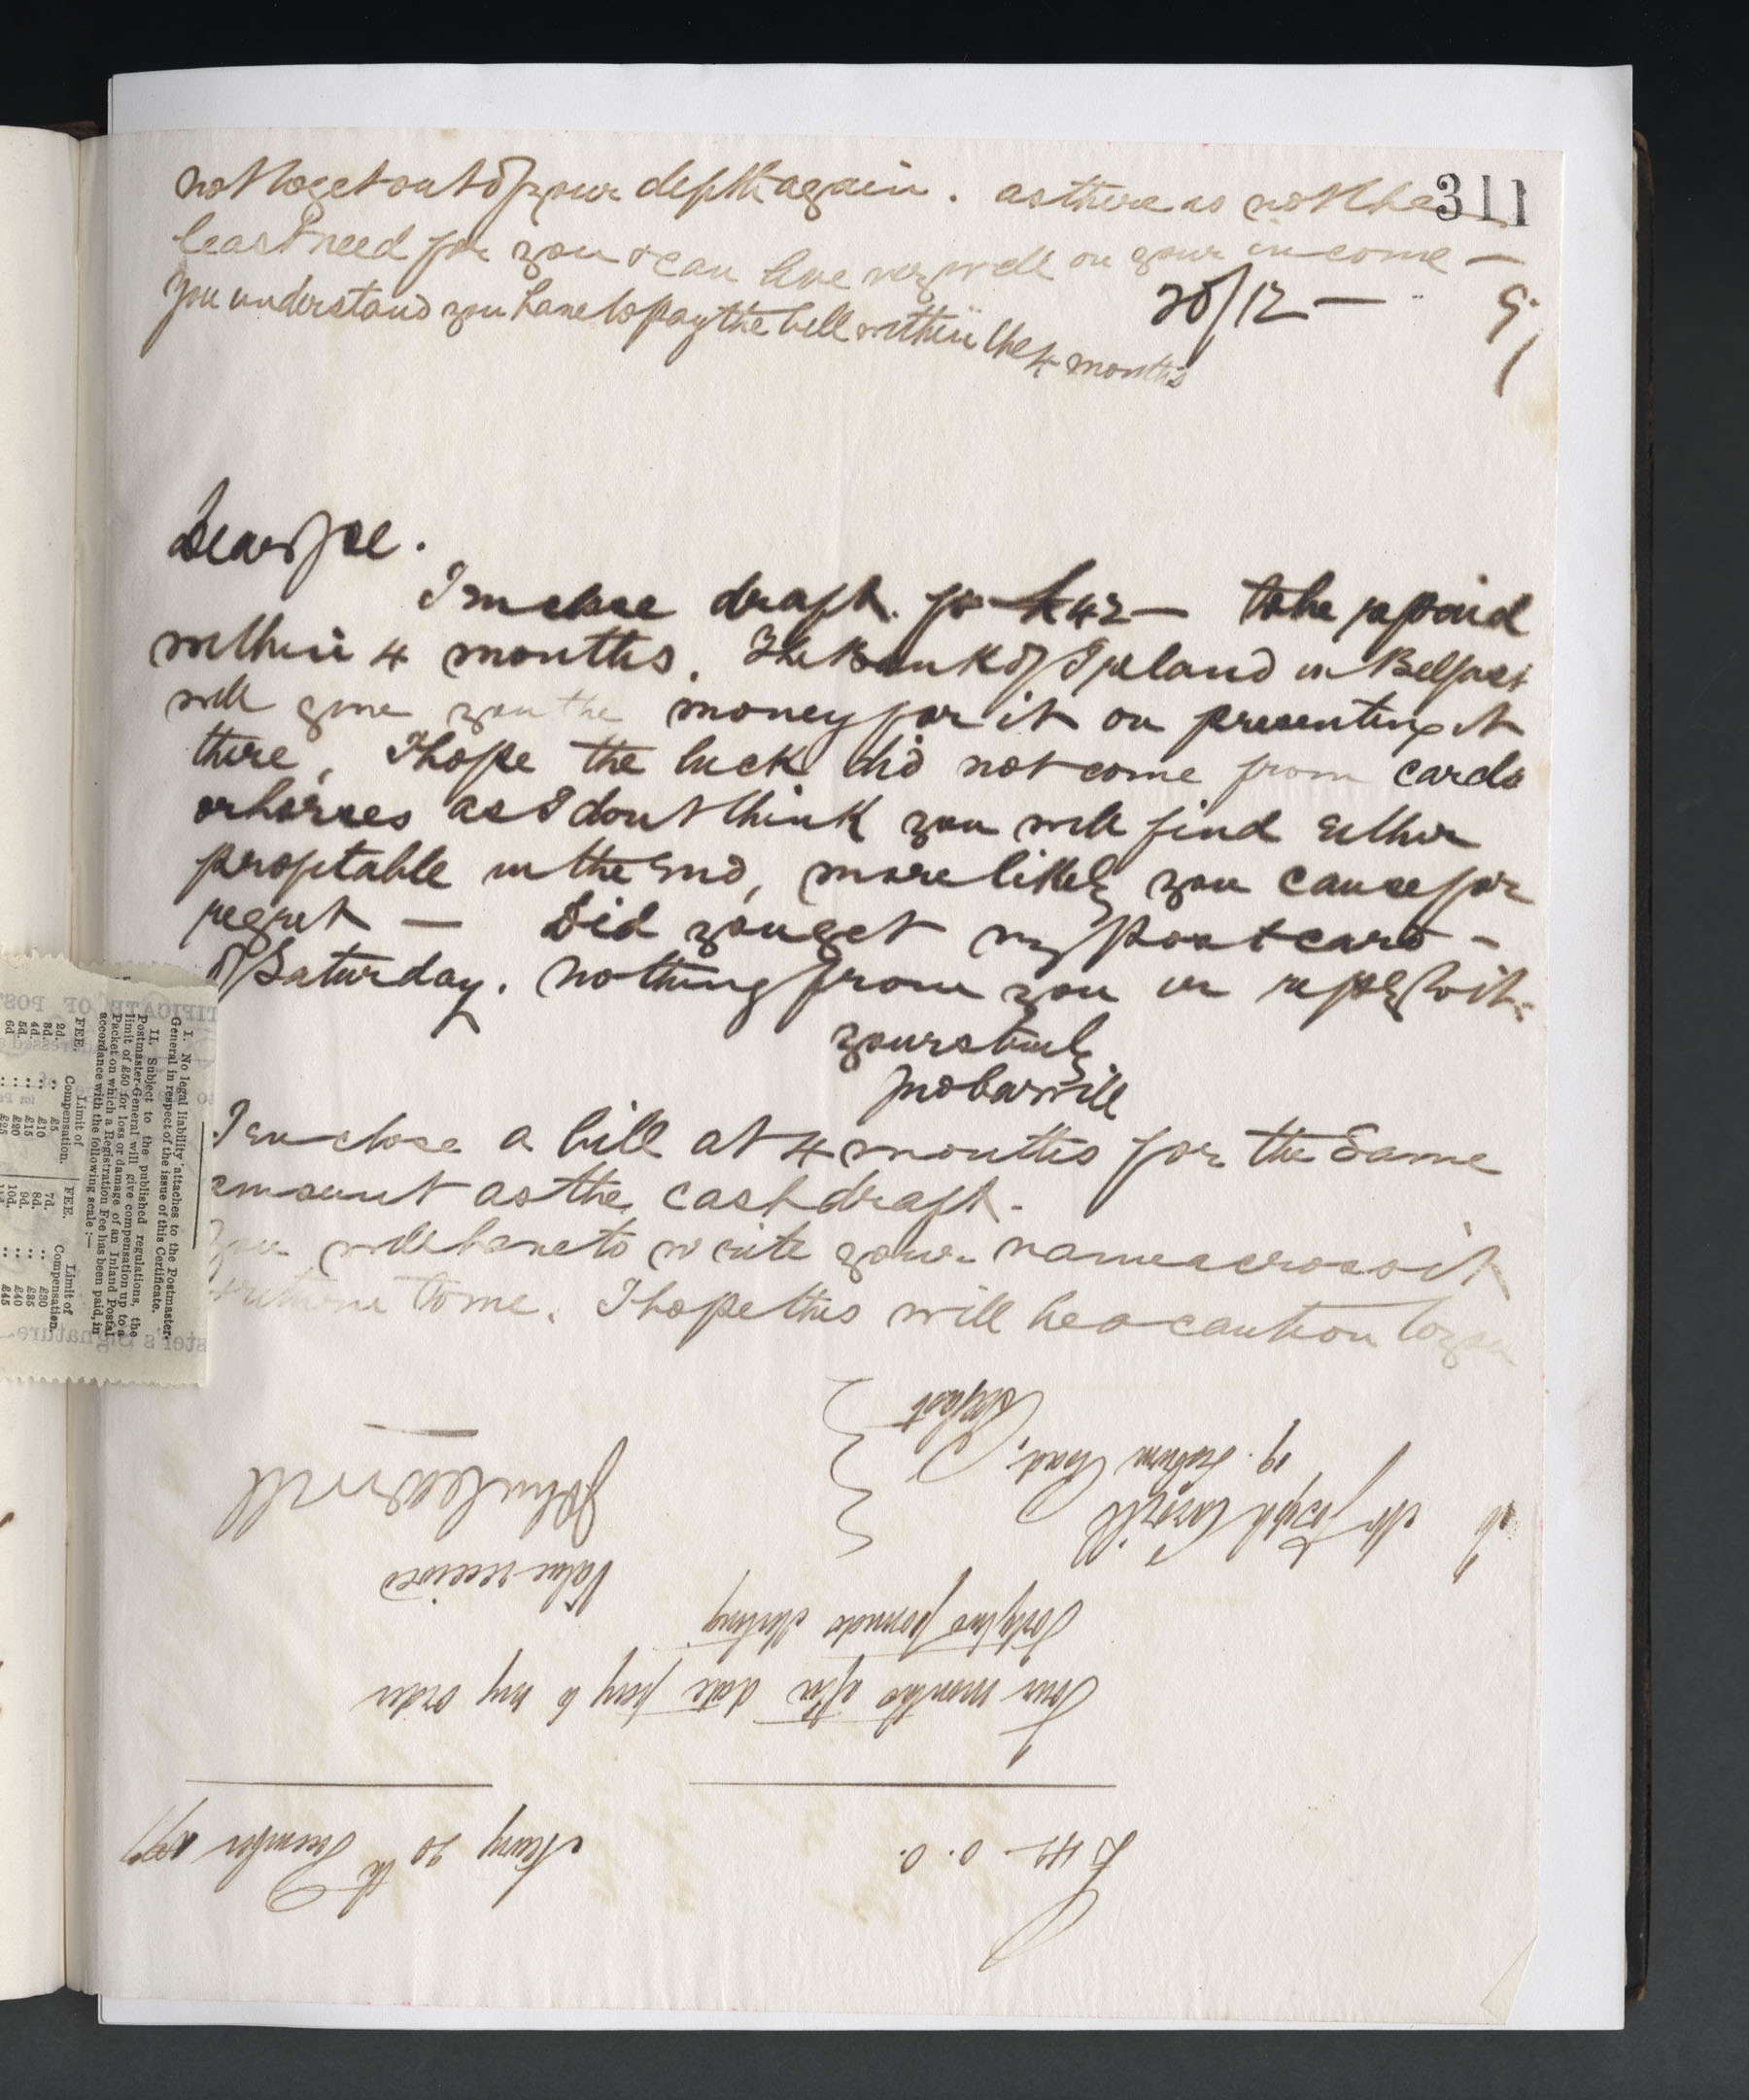 not to get out of your depth again. as there is not the
311
least need for you & can live very well on your income —
20/12 — 97
You understand you have to pay the bill within the 4 months
Dear Joe.
I enclose draft. for £42 — to be repaid
within 4 months. The Bank of Ireland in Belfast
will give you the money for it on presenting it
there, I hope the luck did not come from cards
or horses as I dont think you will find either
profitable in the end, more likely you cause for
regret — Did you get my Postcard —
of Saturday. nothing from you in reply to it.
yours truly
Jno Carvill
I enclose a bill at 4 months for the same
amount as the cash draft.
You will have to write your name across it
& return to me. I hope this will be a caution to you
£42-0.0. Newry 20th December 1897
Four months after date pay to my order
Forty two pounds sterling
Value received
To Mr Joseph Carvill
19. Road,
Belfast
John Carvill
I. No legal liability attaches to the Postmaster-
General in respect of the issue of this Certificate.
II. Subject to the published regulations, the
Postmaster-General will give compensation up to a
limit of £50 for loss or damage of an Inland Postal
Packet on which a Registration Fee has been paid, in
accordance with the following scale:—
FEE. Limit of Compensation. FEE. Limit of Compensation.
2d. .. £5 7d. .. £30
3d. .. £10 8d. .. £35
4d. .. £15 9d. .. £40
5d. .. £20 10d. .. £45
6d. .. £25